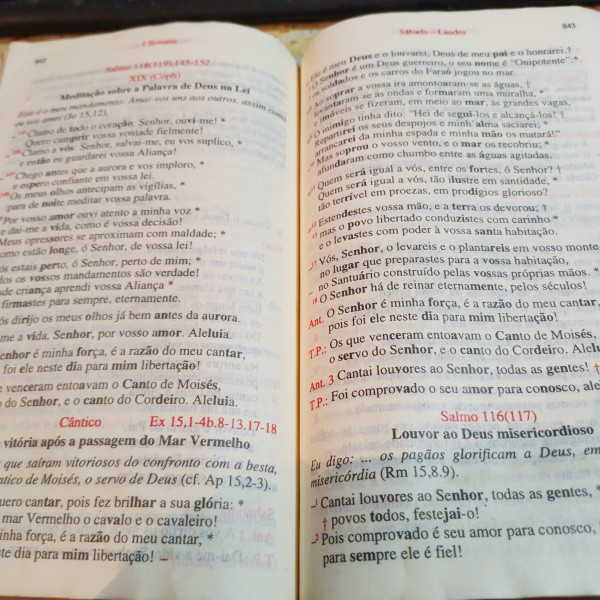 842
I Semana
Salmo 118(119),145-152
XIX (Coph)
Meditação sobre a Palavra de Deus na Lei
Este é o meu mandamento: Amai-vos uns aos outros, assim como
eu vos amei (Jo 15,12).
Clamo de todo o coração, Senhor, ouvi-me! *
Quero cumprir vossa vontade fielmente!
Clamo a vós: Senhor, salvai-me, eu vos suplico, *
e então eu guardarei vossa Aliança!
Chego antes que a aurora e vos imploro, *
e espero confiante em vossa lei.
Os meus olhos antecipam as vigílias, *
para de noite meditar vossa palavra.
Por vosso amor ouvi atento a minha voz *
e dai-me a vida, como é vossa decisão!
Meus opressores se aproximam com maldade; *
como estão longe, ó Senhor, de vossa lei!
estais perto, ó Senhor, perto de mim; *
os vossos mandamentos são verdade!
criança aprendi vossa Aliança *
firmastes para sempre, eternamente.
dirijo os meus olhos já bem antes da aurora.
me a vida, Senhor, por vosso amor. Aleluia.
é minha força, é a razão do meu cantar,
foi ele neste dia para mim libertação!
venceram entoavam o Canto de Moisés,
do Senhor, e o canto do Cordeiro. Aleluia.
Cântico Ex 15,1-4b.8-13.17-18
vitória após a passagem do Mar Vermelho
que saíram vitoriosos do confronto com a besta,
de Moisés, o servo de Deus (cf. Ap 15,2-3).
cantar, pois fez brilhar a sua glória: *
mar Vermelho o cavalo e o cavaleiro!
minha força, é a razão do meu cantar, *
neste dia para mim libertação!
Sábado – Laudes
843
Ele é meu Deus e o louvarei, Deus de meu pai e o honrarei. †
O Senhor é um Deus guerreiro, o seu nome é “Onipotente”: *
os soldados e os carros do Faraó jogou no mar.
Ao soprar a vossa ira amontoaram-se as águas, †
levantaram-se as ondas e formaram uma muralha, *
imóveis se fizeram, em meio ao mar, as grandes vagas,
O inimigo tinha dito: “Hei de segui-los e alcançá-los! †
Repartirei os seus despojos e minh'alma saciarei; *
arrancarei da minha espada e minha mão os matará!”
Mas soprou o vosso vento, e o mar os recobriu; *
afundaram como chumbo entre as águas agitadas.
Quem será igual a vós, entre os fortes, ó Senhor? †
Quem será igual a vós, tão ilustre em santidade, *
tão terrível em proezas, em prodígios glorioso?
Estendestes vossa mão, e a terra os devorou; †
mas o povo libertado conduzistes com carinho *
e o levastes com poder à vossa santa habitação.
Vós, Senhor, o levareis e o plantareis em vosso monte
no lugar que preparastes para a vossa habitação,
no Santuário construído pelas vossas próprias mãos. *
O Senhor há de reinar eternamente, pelos séculos!
Ant. O Senhor é minha força, é a razão do meu cantar,
pois foi ele neste dia para mim libertação!
T.P.: Os que venceram entoavam o Canto de Moisés,
o servo do Senhor, e o canto do Cordeiro. Aleluia.
Ant. 3 Cantai louvores ao Senhor, todas as gentes! †
T.P.: Foi comprovado o seu amor para conosco, ale
Salmo 116(117)
Louvor ao Deus misericordioso
Eu digo: ... os pagãos glorificam a Deus, em
misericórdia (Rm 15,8.9).
Cantai louvores ao Senhor, todas as gentes, *
† povos todos, festejai-o!
Pois comprovado é seu amor para conosco, *
para sempre ele é fiel!